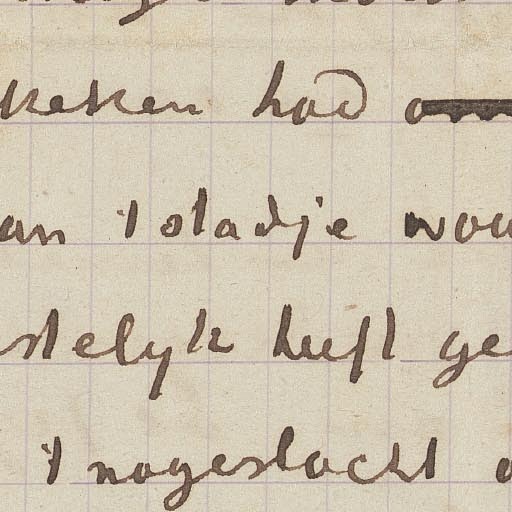 keken had
an 't stadje wou
stelyk heeft ge
't nageslacht